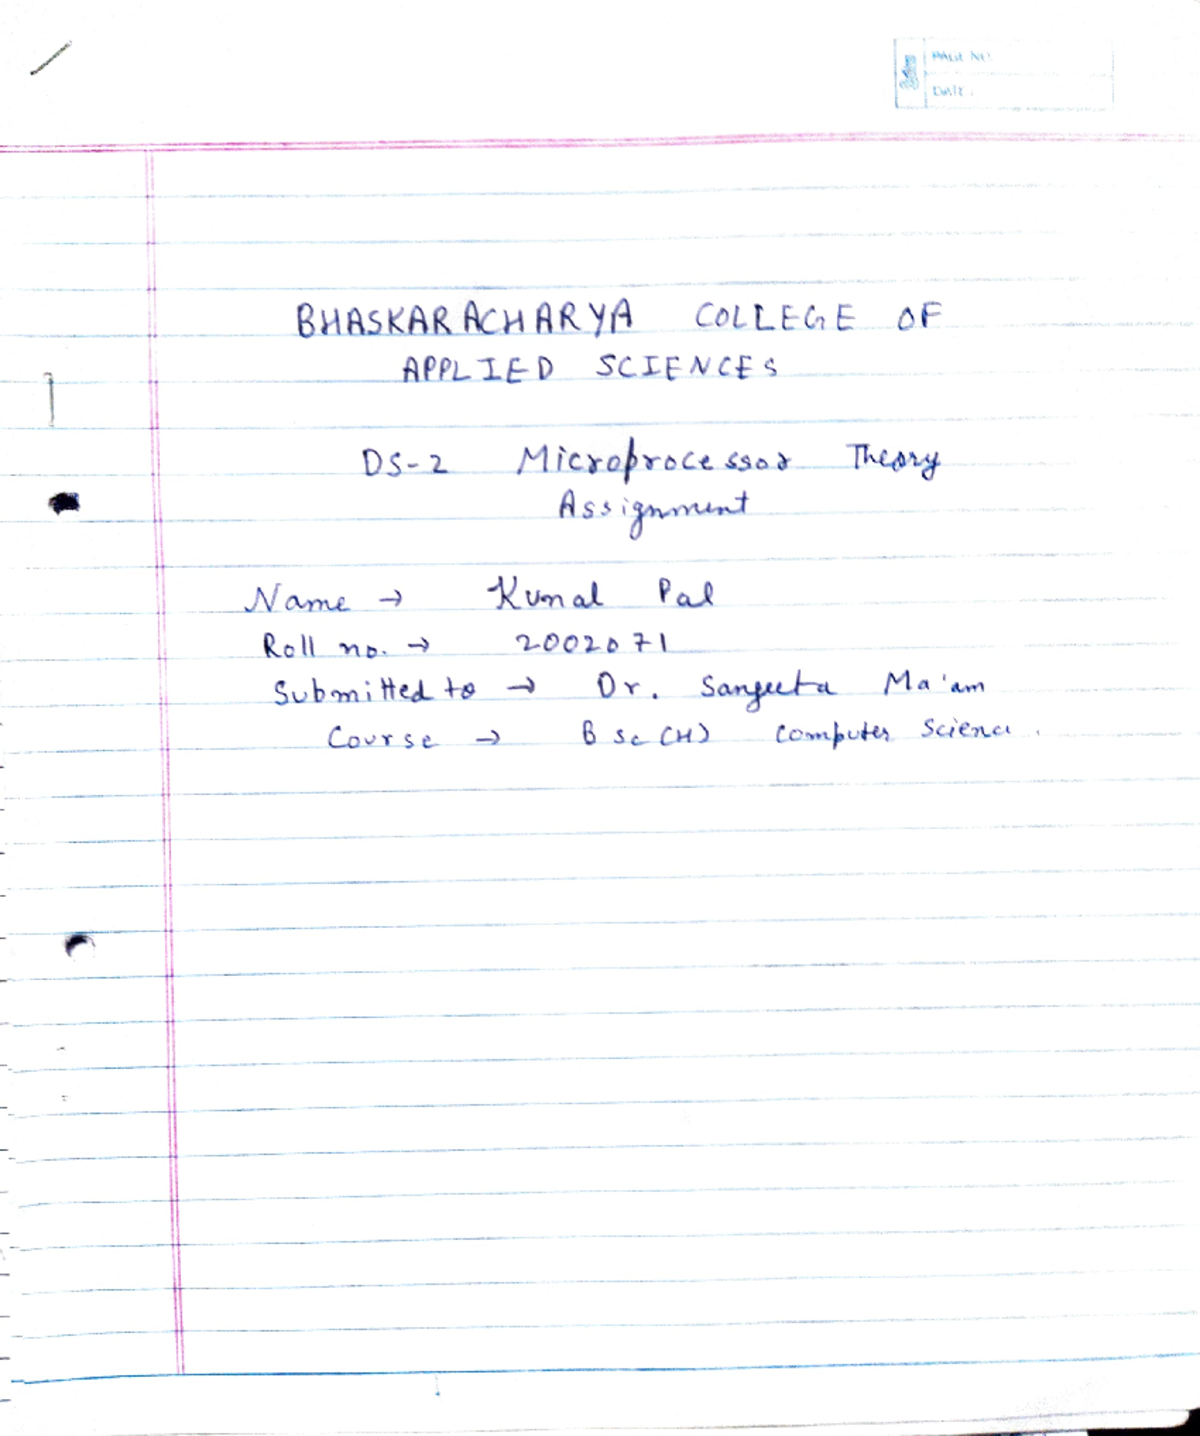 PAGE NO.
DATE :
BHASKARACHARYA COLLEGE OF
APPLIED SCIENCES
DS-2 Microprocessor Theory
Assignment
Name → Kunal Pal
Roll no. → 2002071
Submitted to → Dr. Sangeeta Ma'am
Course → B Sc (H) Computer Science.